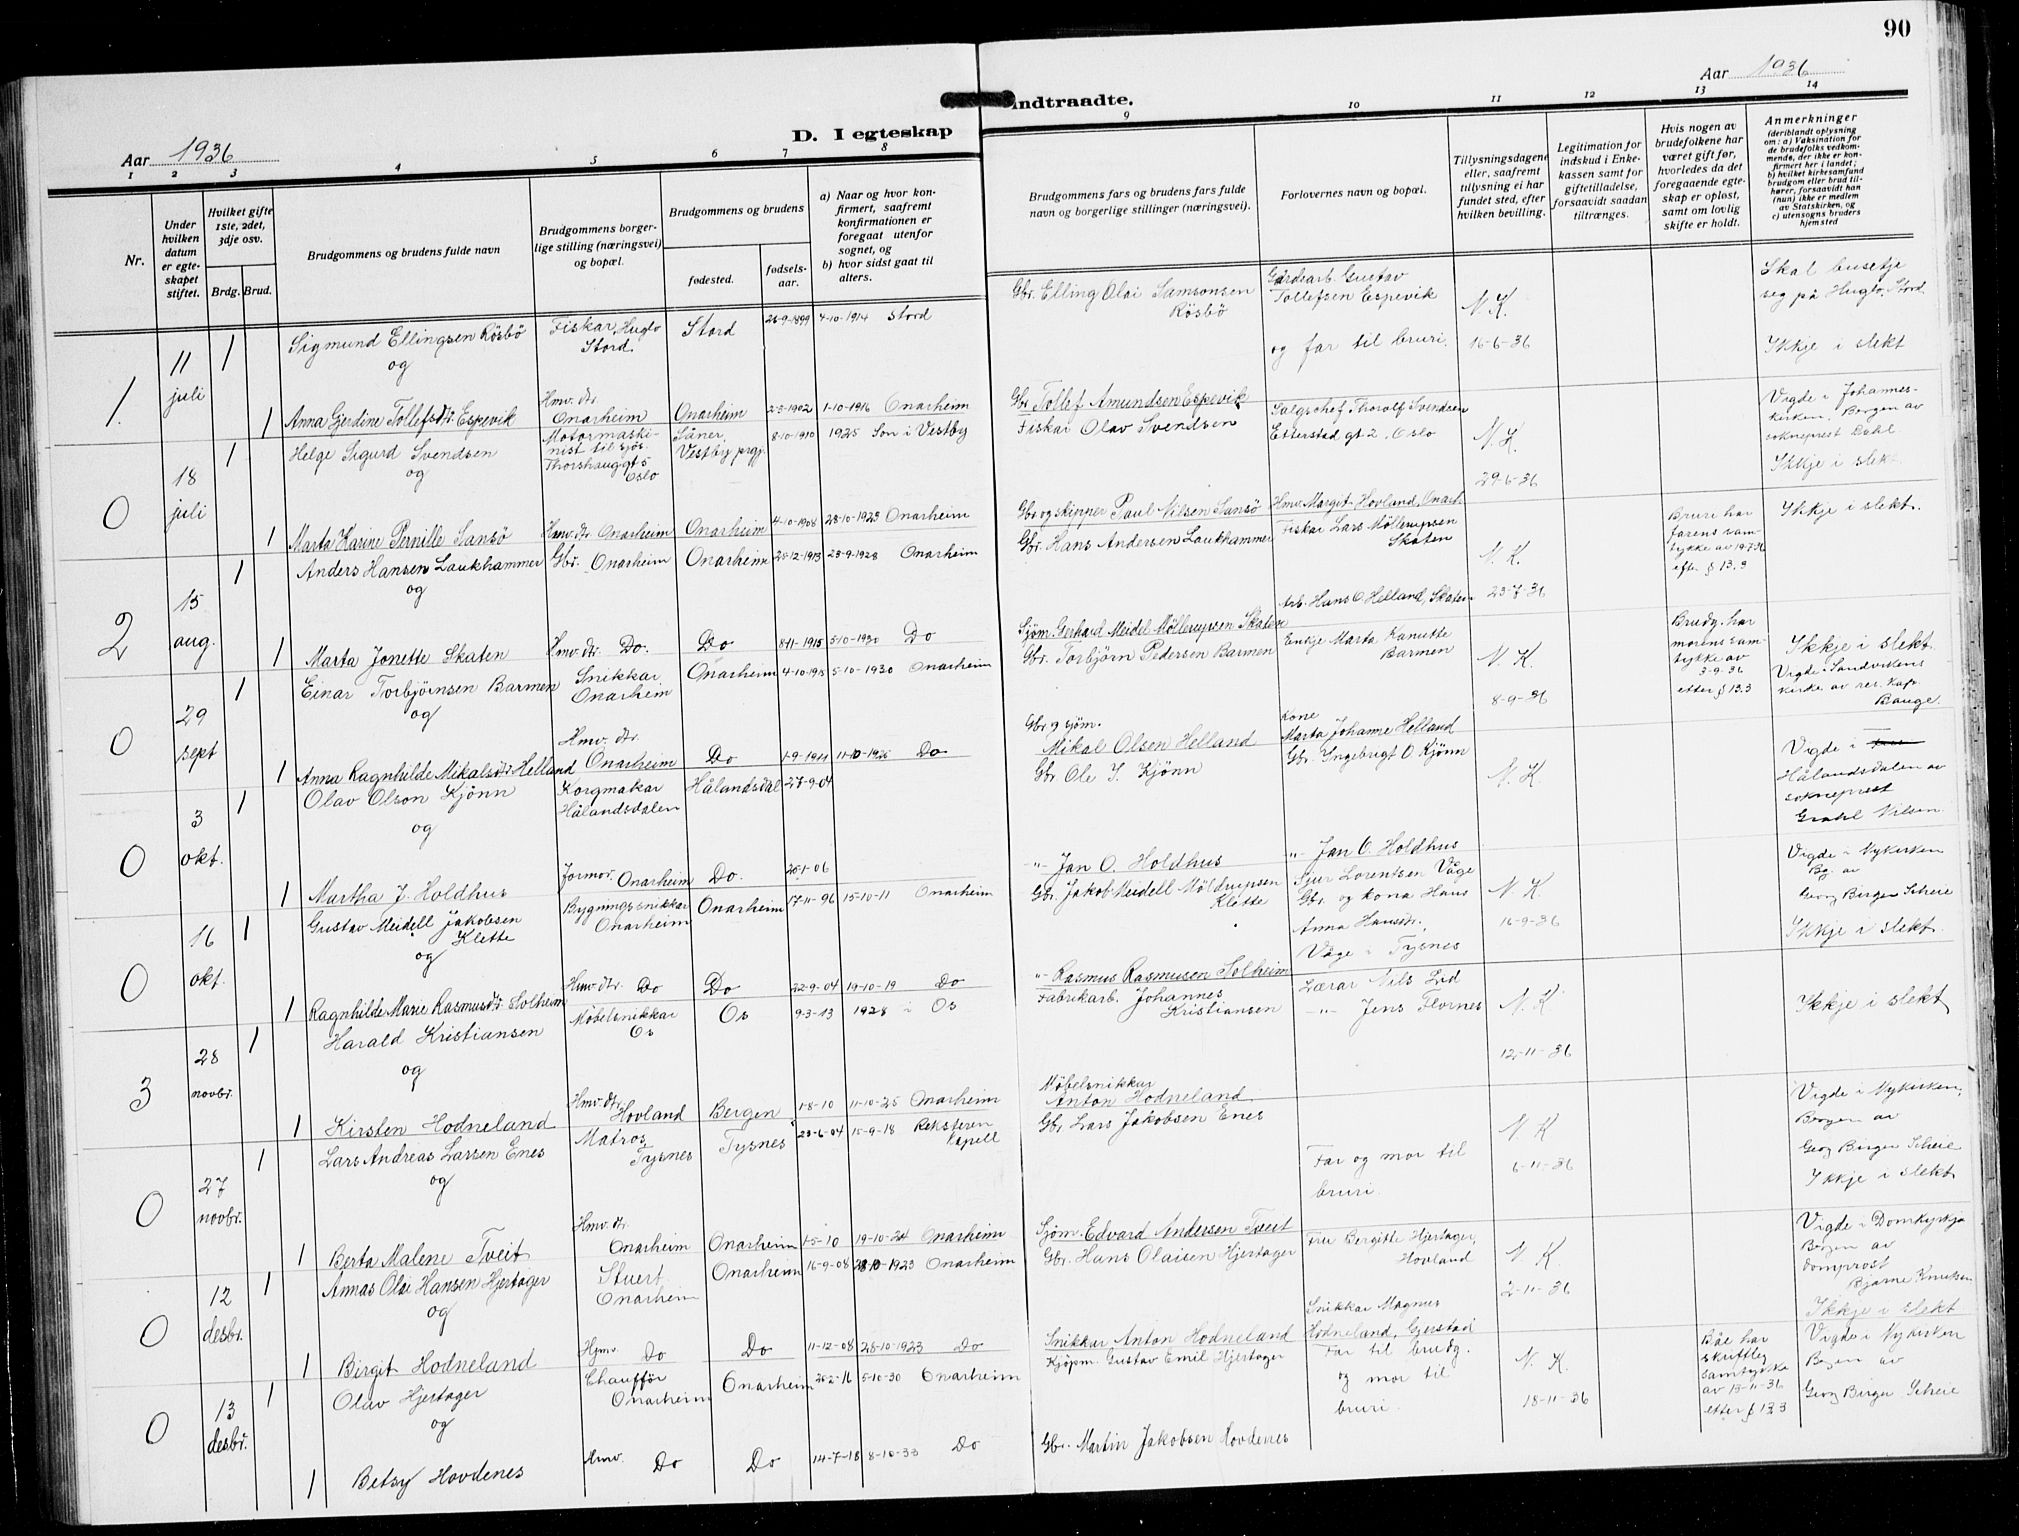 90
Aar 1936
Aar 1936
D. I egteskap indtraadte.
1 2 3 4 5 6 7 8 9 10 11 12 13 14
Nr.
Under hvilken datum er egteskapet stiftet.
Hvilket gifte 1ste, 2det, 3dje osv.
Brdg. Brud.
Brudgommens og brudens fulde navn
Brudgommens borgerlige stilling (næringsvei) og bopæl.
Brudgommens og brudens
fødested.
fødselsaar.
a) Naar og hvor konfirmert, saafremt konfirmationen er foregaat utenfor sognet, og
b) hvor sidst gaat til alters.
Brudgommens fars og brudens fars fulde navn og borgerlige stillinger (næringsvei).
Forlovernes navn og bopæl.
Tillysningsdagene eller, saafremt tillysning ei har fundet sted, efter hvilken bevilling.
Legitimation for indskud i Enkekassen samt for giftetilladelse, forsaavidt saadan tiltrænges.
Hvis nogen av brudefolkene har været gift før, hvorledes da det foregaaende egteskap er opløst, samt om lovlig skifte er holdt.
Anmerkninger
(deriblandt oplysning om: a) Vaksination for de brudefolks vedkommende, der ikke er konfirmert her i landet; b) hvilket kirkesamfund brudgom eller brud tilhører, forsaavidt han (hun) ikke er medlem av Statskirken, og c) utensogns bruders hjemsted
1. 11 juli
1 Sigmund Ellingsen Røsbø Fiskar, Huglo Stord. Stord 4-10-1914 Stord Gbr. Elling Olai Samsonsen Røsbø Gardearb. Gustav Tollefsen Espevik N. K. Skal busetje seg på Huglo, Stord
og og far til bruri. 16-6-36 Ikkje i slekt
1 Anna Gjerdine Tollefsdtr Espevik Hmv. dtr Onarheim Onarheim 1-10-1916 Onarheim Gbr Tollef Amundsen Espevik
0 18 juli
1 Helge Sigurd Svendsen Motormaskinist til sjøs Thorshauggt 5 Oslo Såner, Vestby prgj. 8-10-1910 1925 Son i Vestby Fiskar Olav Svendsen Salgschef Thorolf Svendsen Etterstad gt 2, Oslo N. K. Vigde i Johanneskirken, Bergen av sokneprest Dahl.
og 29-6-36 Ikkje i slekt
1 Marta Karine Pernille Sansø Hmv. dtr Onarheim Onarheim 4-10-1908 28-10-1923 Onarheim Gbr og skipper Paul Nilsen Sansø Hmv. Margit Hovland, Onarh.
2 15 aug.
1 Anders Hansen Laukhammer Gbr. Onarheim Onarheim 23-9-1928 Onarheim Gbr. Hans Andersen Laukhammer Fiskar Lars Møllerupsen Skaten N. K. Brure har farens samtykke av 19-7-36 efter § 13.3 Ikkje i slekt.
og Arb. Hans O. Helland, Skaten 23-7-36
1 Marta Jonette Skaten Hmv. dtr. Do. Do 8-11-1915 5-10-1930 Do Sjøm. Gerhard Meidel Møllerupsen Skaten
0 29 sept
1 Einar Torbjørnsen Barmen Snikkar Onarheim Onarheim 4-10-1915 5-10-1930 Onarheim Gbr. Torbjørn Pedersen Barmen Enkje Marta Kanutte Barmen N. K. Brudg. har morens samtykke av 3-9-36 etter § 13.3 Ikkje i slekt. Vigde i Sandvikens kirke av res. kap. Bauge.
og 8-9-36
1 Anna Ragnhilde Mikalsdtr Helland Hmv. dtr. Onarheim Do 11-10-1926 Do Gbr og sjøm. Mikal Olsen Helland Kone Marta Johanne Helland
0 3 okt.
1 Olav Olson Kjønn Korgmakar Hålandsdalen Hålandsdal 27-9-04 Gbr Ole I. Kjønn Gbr. Ingebrigt O. Kjønn N. K. Vigde i Hålandsdalen av sokneprest Grahl Nilsen
og
1 Martha J. Holdhus Jormor. Onarheim Do. 20-1-06 -"- Jan O. Holdhus -"- Jan O. Holdhus
0 16 okt.
1 Gustav Meidell Jakobsen Klette Bygningssnikkar Onarheim Onarheim 17-11-96 15-10-11 Onarheim Gbr. Jakob Meidell Møldrupsen Klette Sjur Lorentsen Våge Gbr. og kona Hans Anna Hansdtr., Våge i Tysnes N. K. 16-9-36 Vigde i Nykirken Bg. av Georg Birger Scheie Ikkje i slekt.
og
1 Ragnhilde Marie Rasmusdtr Solheim Hmv. dtr. Do Do 22-9-04 19-10-19 Do -"- Rasmus Rasmusen Solheim
3 28 novbr.
1 Harald Kristiansen Møbelsnikkar Os Os 9-3-13 1928 i Os Fabrikarb. Johannes Kristiansen Lærar Nils Lid -"- Jens Flornes N. K. 12-11-36 Ikkje i slekt
og
1 Kirsten Hodneland Hmv. dtr Hovland Bergen 1-8-10 11-10-25 Onarheim Møbelsnikkar Anton Hodneland
0 27 novbr.
1 Lars Andreas Larsen Enes Matros, Tysnes Tysnes 23-6-04 15-9-18 Reksteren Kapell Gbr Lars Jakobsen Enes Far og mor til bruri. N. K 6-11-36 Vigde i Nykirken, Bergen av Georg Birger Scheie Ikkje i slekt
og
1 Berta Malene Tveit Hmv. dtr Onarheim Onarheim 1-5-10 19-10-24 Onarheim Sjøm. Edvard Andersen Tveit
0 12 desbr.
1 Annas Olai Hansen Hjertager Stuert. Onarheim Onarheim 16-9-08 28-10-1923 Onarheim Gbr. Hans Olaisen Hjertager Fru Bergitte Hjertager, Hovland N. K 2-11-36 Vigde i Domkyrkja Bergen av domprost Bjarne Knutsen Ikkje i slekt
og Snikkar Magnus Hodneland, Gjerstad
1 Birgit Hodneland Hjmv. Do Do 11-12-08 28-10-1923 Do Snikkar Anton Hodneland
0 13 desbr.
1 Olav Hjertager Chauffør Onarheim Onarheim 20-2-16 5-10-30 Onarheim Kjøpm. Gustav Emil Hjertager Far til brudg. og mor til bruri. N. K. 18-11-36 Båe har skriftleg samtykke av 13-11-36 etter § 13.3 Vigde i Nykirken Bergen av Georg Birger Scheie
og
1 Betsy Hovdenes Hmv. Do Do 14-7-18 8-10-33 Do Gbr. Martin Jakobsen Hovdenes